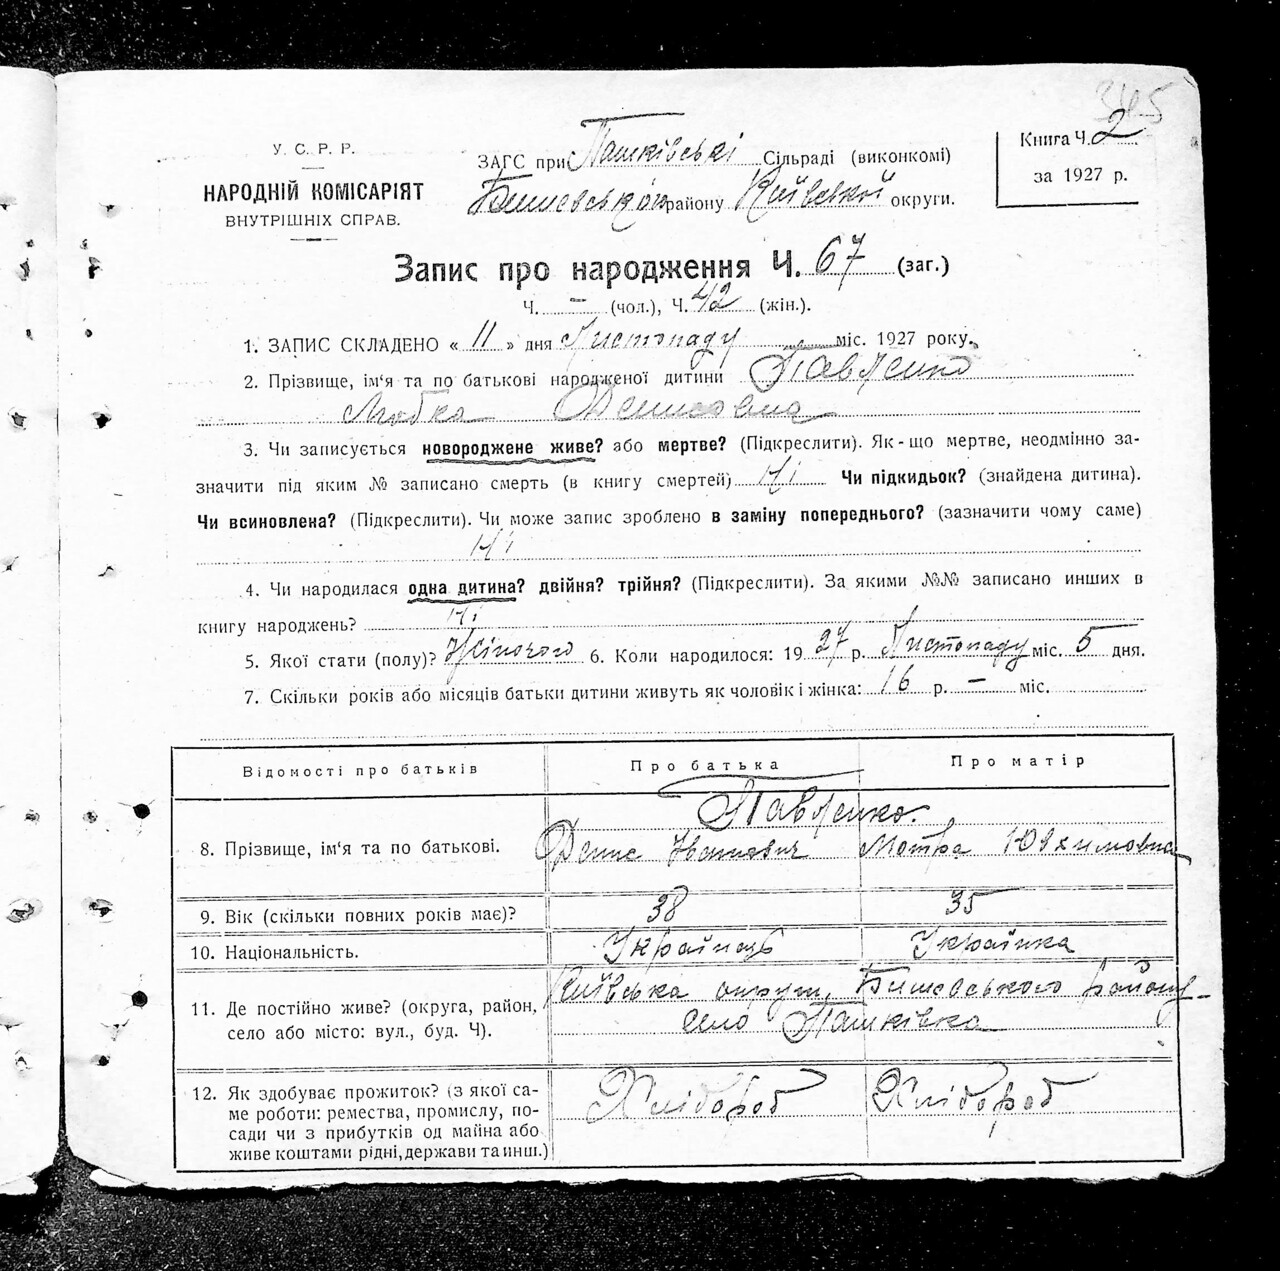 345
У. С. Р. Р.
НАРОДНІЙ КОМІСАРІЯТ
ВНУТРІШНІХ СПРАВ.
ЗАГС при Пашківські Сільраді (виконкомі)
Бишевськом району Київської округи.
Книга Ч. 2
за 1927 р.
Запис про народження Ч. 67 (заг.)
Ч. – (чол.), Ч. 42 (жін.).
1. ЗАПИС СКЛАДЕНО « 11 » дня Листопаду міс. 1927 року.
2. Прізвище, ім'я та по батькові народженої дитини Павленко
Любка Денисовна
3. Чи записується новороджене живе? або мертве? (Підкреслити). Як-що мертве, неодмінно за-
значити під яким № записано смерть (в книгу смертей) Ні Чи підкидьок? (знайдена дитина).
Чи всиновлена? (Підкреслити). Чи може запис зроблено в заміну попереднього? (зазначити чому саме)
Ні
4. Чи народилася одна дитина? двійня? трійня? (Підкреслити). За якими №№ записано инших в
книгу народжень? Ні
5. Якої стати (полу)? Жіночого 6. Коли народилося: 1927 р. Листопаду міс. 5 дня.
7. Скільки років або місяців батьки дитини живуть як чоловік і жінка: 16 р. – міс.
Відомості про батьків Про батька Про матір
Павленко.
8. Прізвище, ім'я та по батькові. Денис Іванович Мотра Юхимовна
9. Вік (скільки повних років має)? 38 35
10. Національність. Українець Українка
11. Де постійно живе? (округа, район, Київська округи, Бишевського району
село або місто: вул., буд. Ч). село Пашківка
12. Як здобуває прожиток? (з якої са-
ме роботи: ремества, промислу, по- Хлібороб Хлібороб
сади чи з прибутків од майна або
живе коштами рідні, держави та инш.)